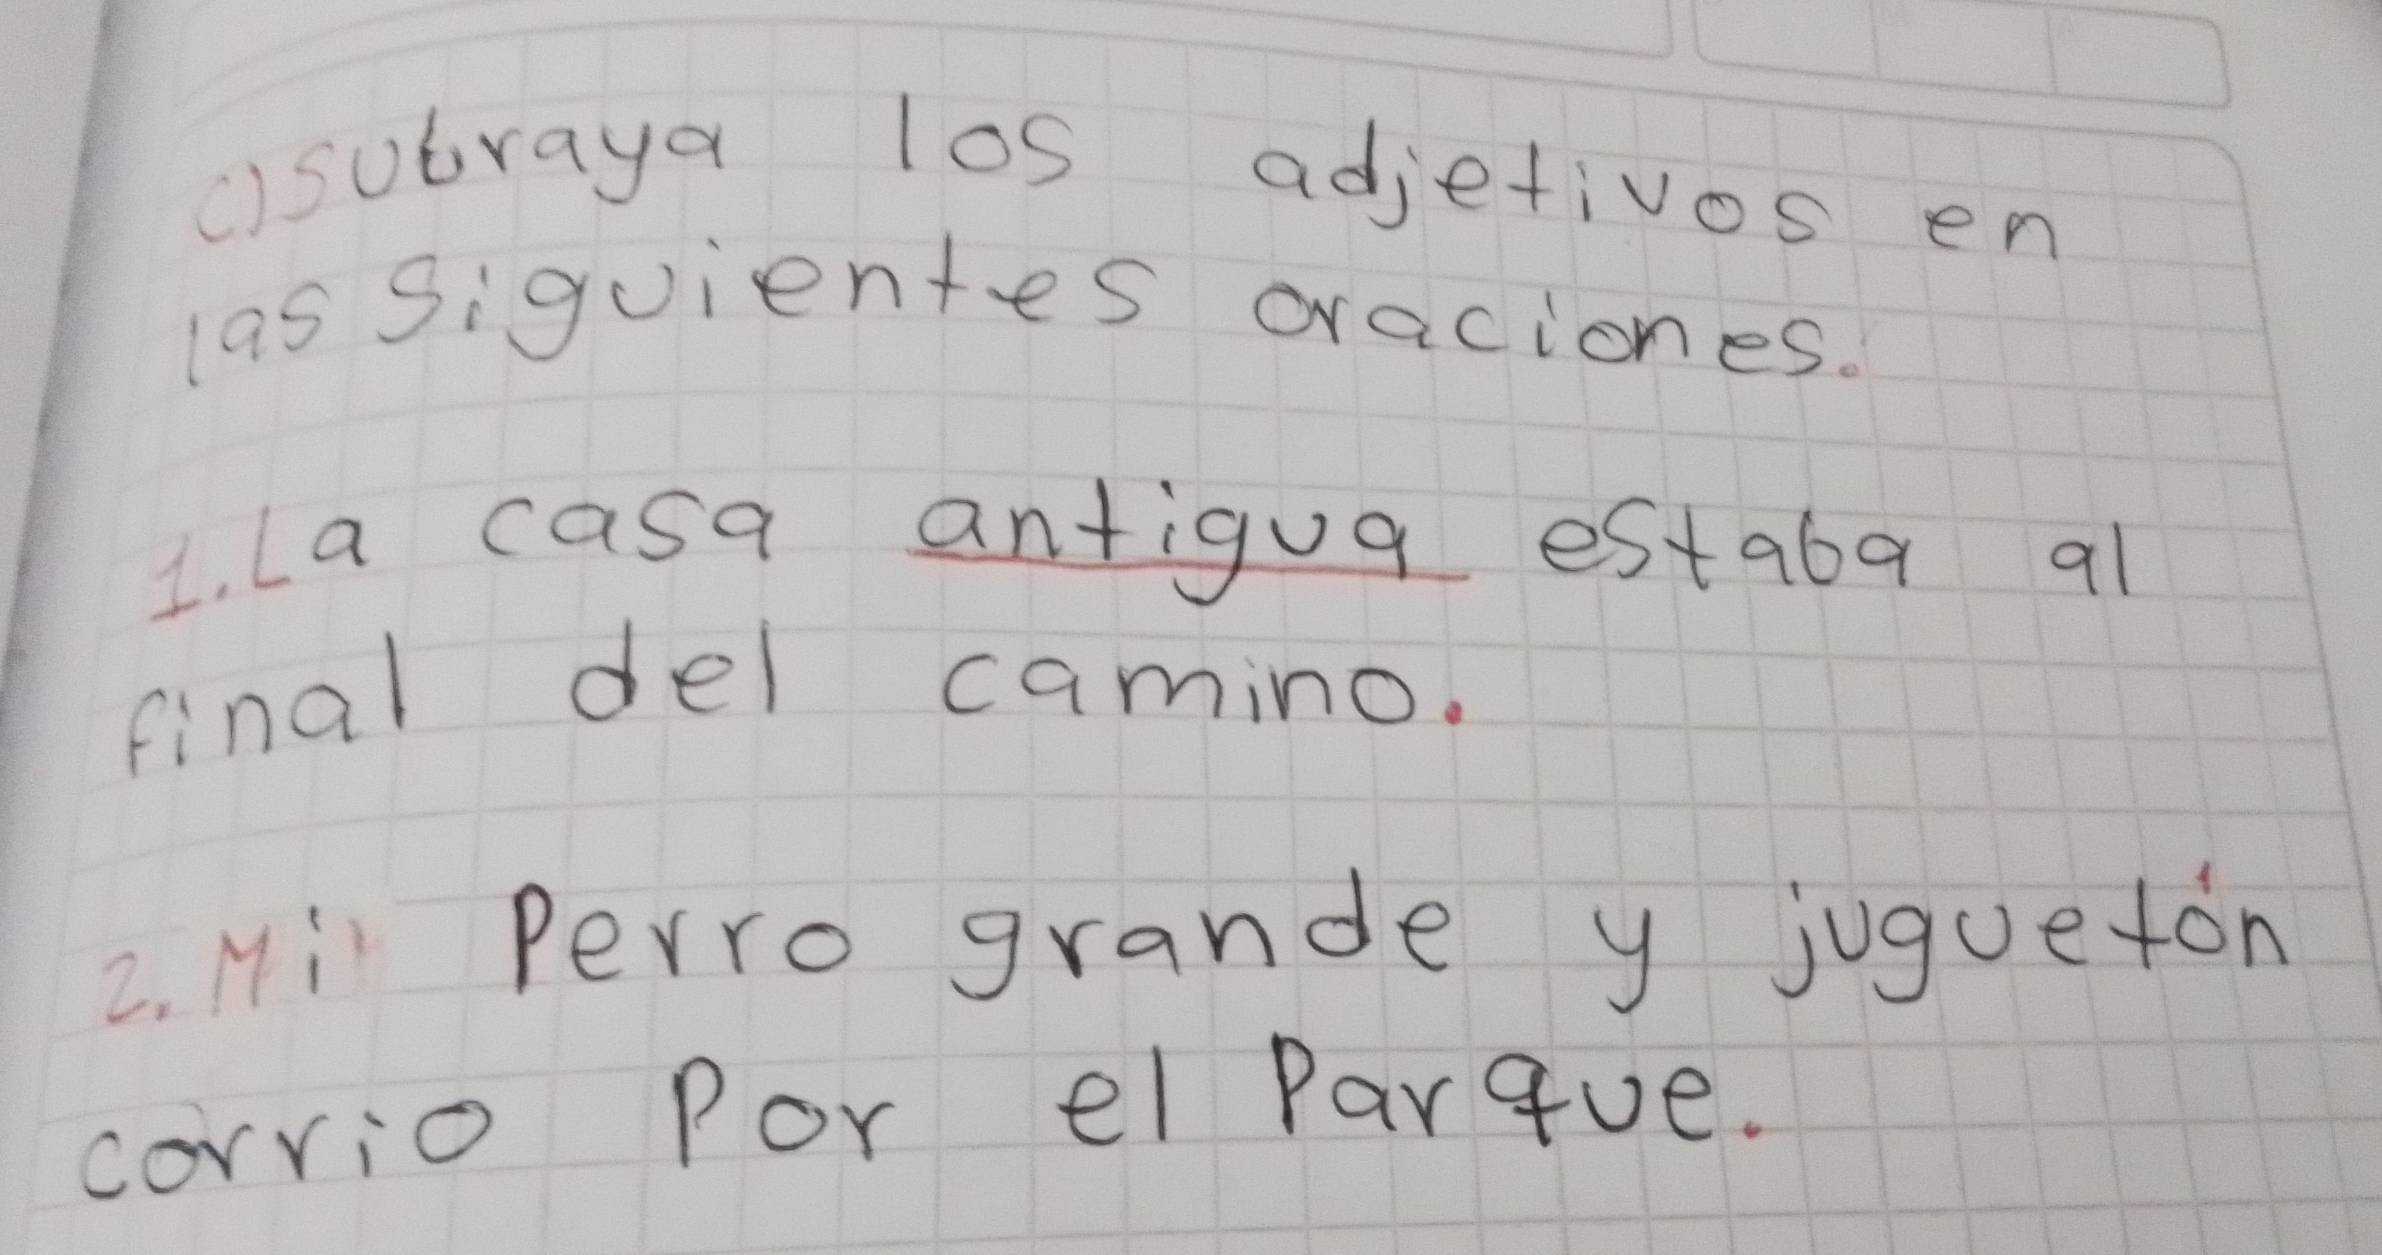 c) subraya los adjetivos en
las siguientes oraciones.
1. La casa antigua estaba al
final del camino.
2. Mi Perro grande y juguetón
corrio Por el Parque.